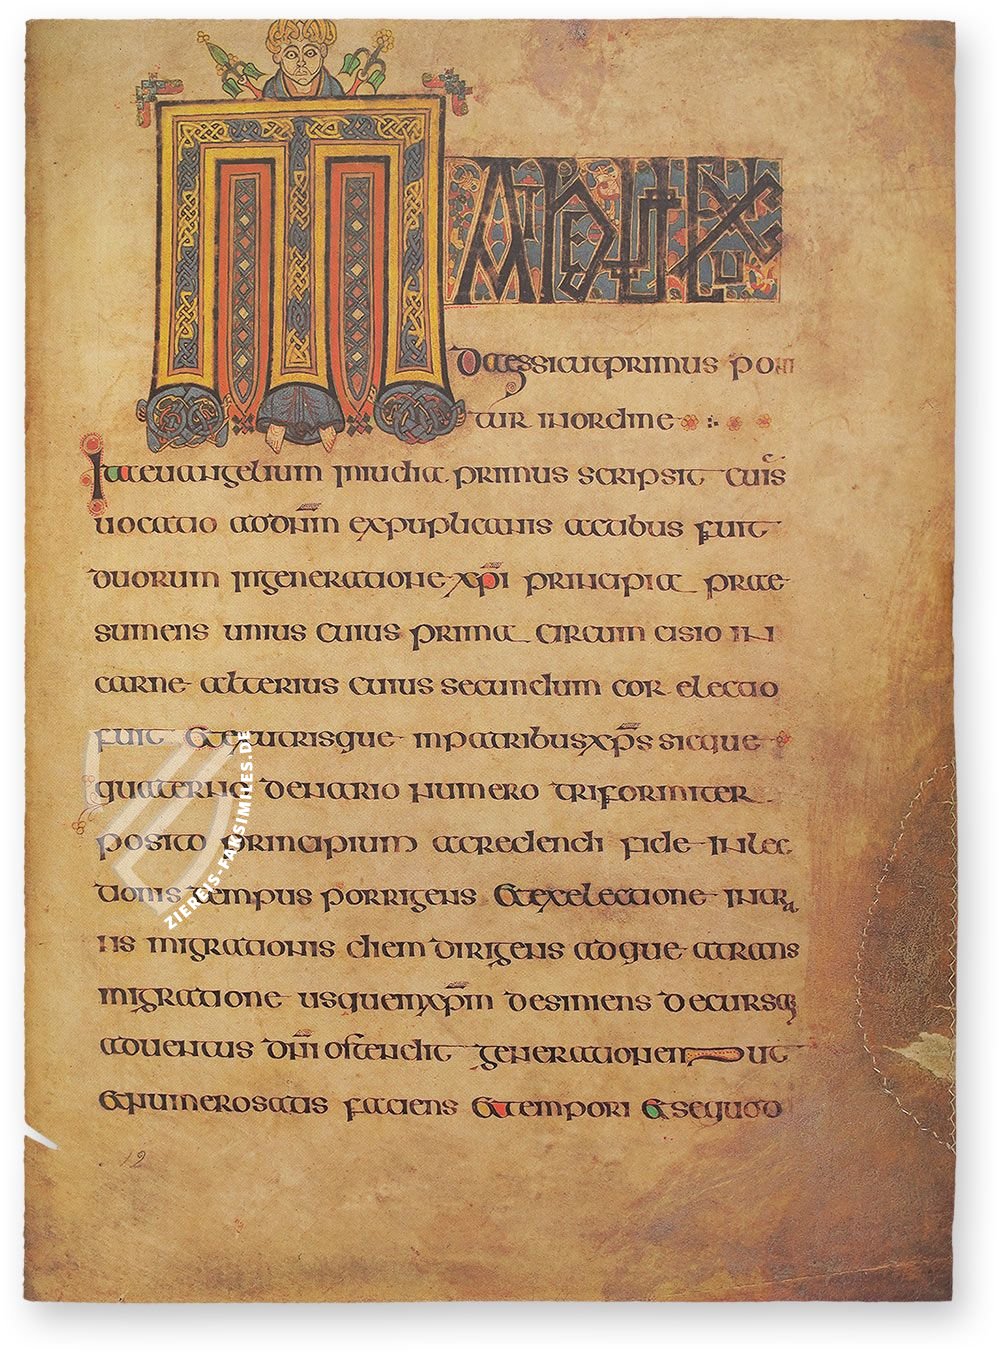 MATHEUS EX IU
da es sicut primus poni
tur in ordine
Ita euangelium in iudia primus scripsit cuis
uocatio ad dn̄m expuplicanis actibus fuit
duorum in generatione xp̄i principia prae
sumens unius cuius prima circum cisio in
carne alterius cuius secundum cor electio
fuit et ex utrisque in patribus xp̄s sicque
quaterno denario numero triformiter
posito principium a credendi fide in elec
tionis tempus porrigens et exelectione in tra
ns migrationis diem dirigens adque a trans
migratione usque in xp̄m desiniens decursa
aduentus dn̄i ostendit generationem ut
et numero satis faciens et tempori et se quod
12
ZIEREIS-FAKSIMILES.DE